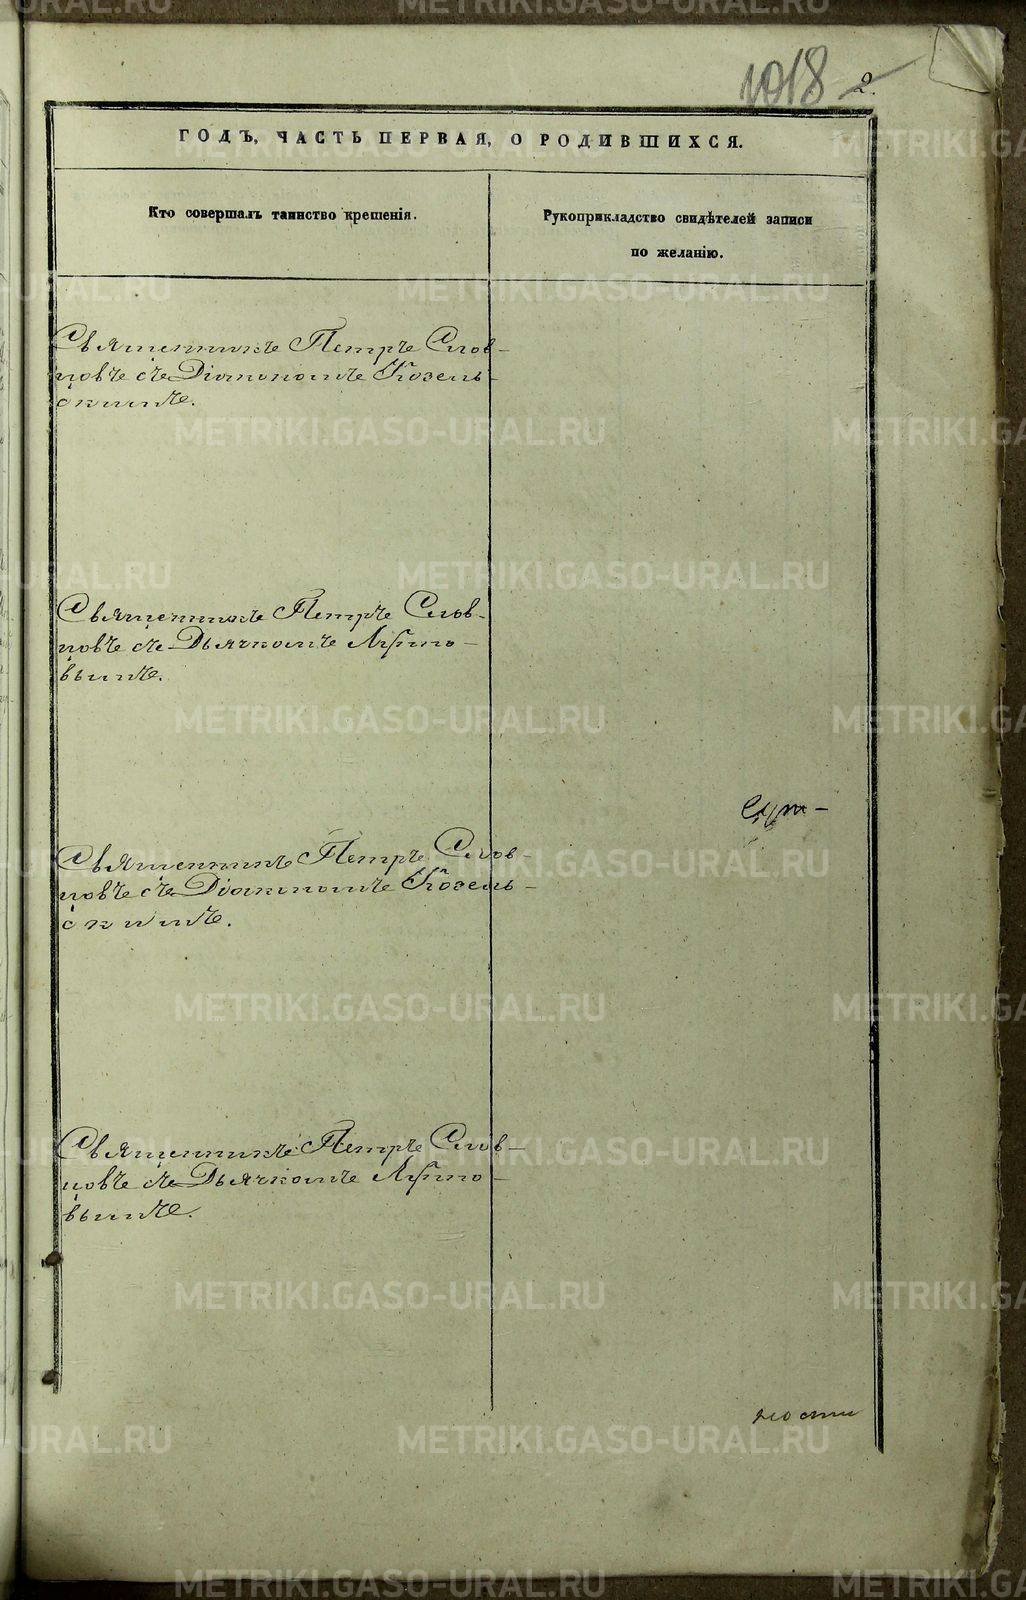 1018 2.
ГОДЪ, ЧАСТЬ ПЕРВАЯ, О РОДИВШИХСЯ.
Кто совершалъ таинство крещенія.
Рукоприкладство свидѣтелей записи
по желанію.
Священникъ Петръ Слов-
цовъ съ Діакономъ Козель-
скимъ.
Священникъ Петръ Слов-
цовъ съ Дьячкомъ
вымъ.
Священникъ Петръ Слов-
цовъ съ Діакономъ Козель-
скимъ.
Священникъ Петръ Слов-
цовъ съ Дьячкомъ
вымъ.
METRIKI.GASO-URAL.RU